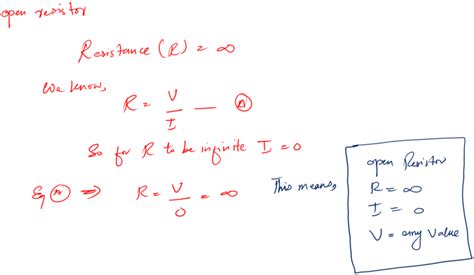 open resistor
Resistance (R) = ∞
We know,
R = V/I — Ⓐ
So for R to be infinite I = 0
Eq Ⓐ ⇒ R = V/0 = ∞ This means,
open Resistor
R = ∞
I = 0
V = any value